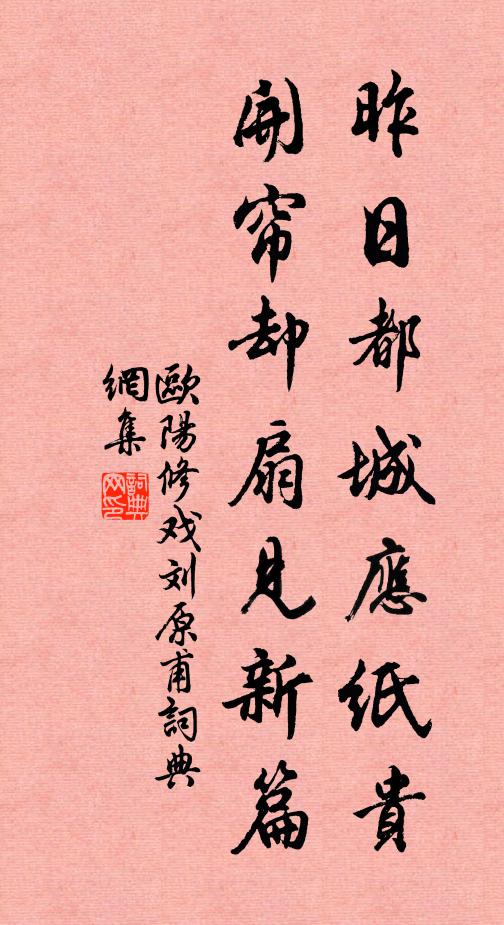 昨日都城應紙貴
開帘却扇見新篇
歐陽修戏刘原甫詞典
網集
詞典网印